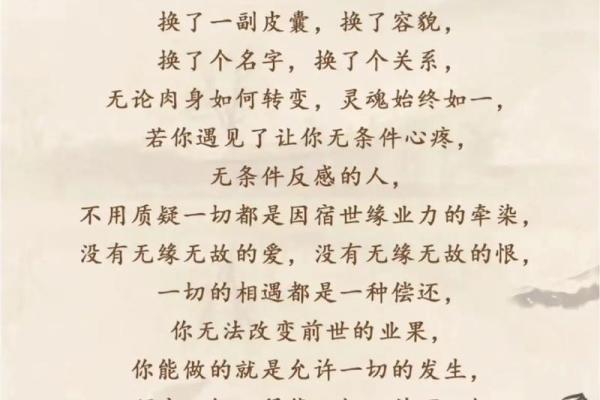 换了一副皮囊，换了容貌，
换了个名字，换了个关系，
无论肉身如何转变，灵魂始终如一，
若你遇见了让你无条件心疼，
无条件反感的人，
不用质疑一切都是因宿世缘业力的牵染，
没有无缘无故的爱，没有无缘无故的恨，
一切的相遇都是一种偿还，
你无法改变前世的业果，
你能做的就是允许一切的发生，